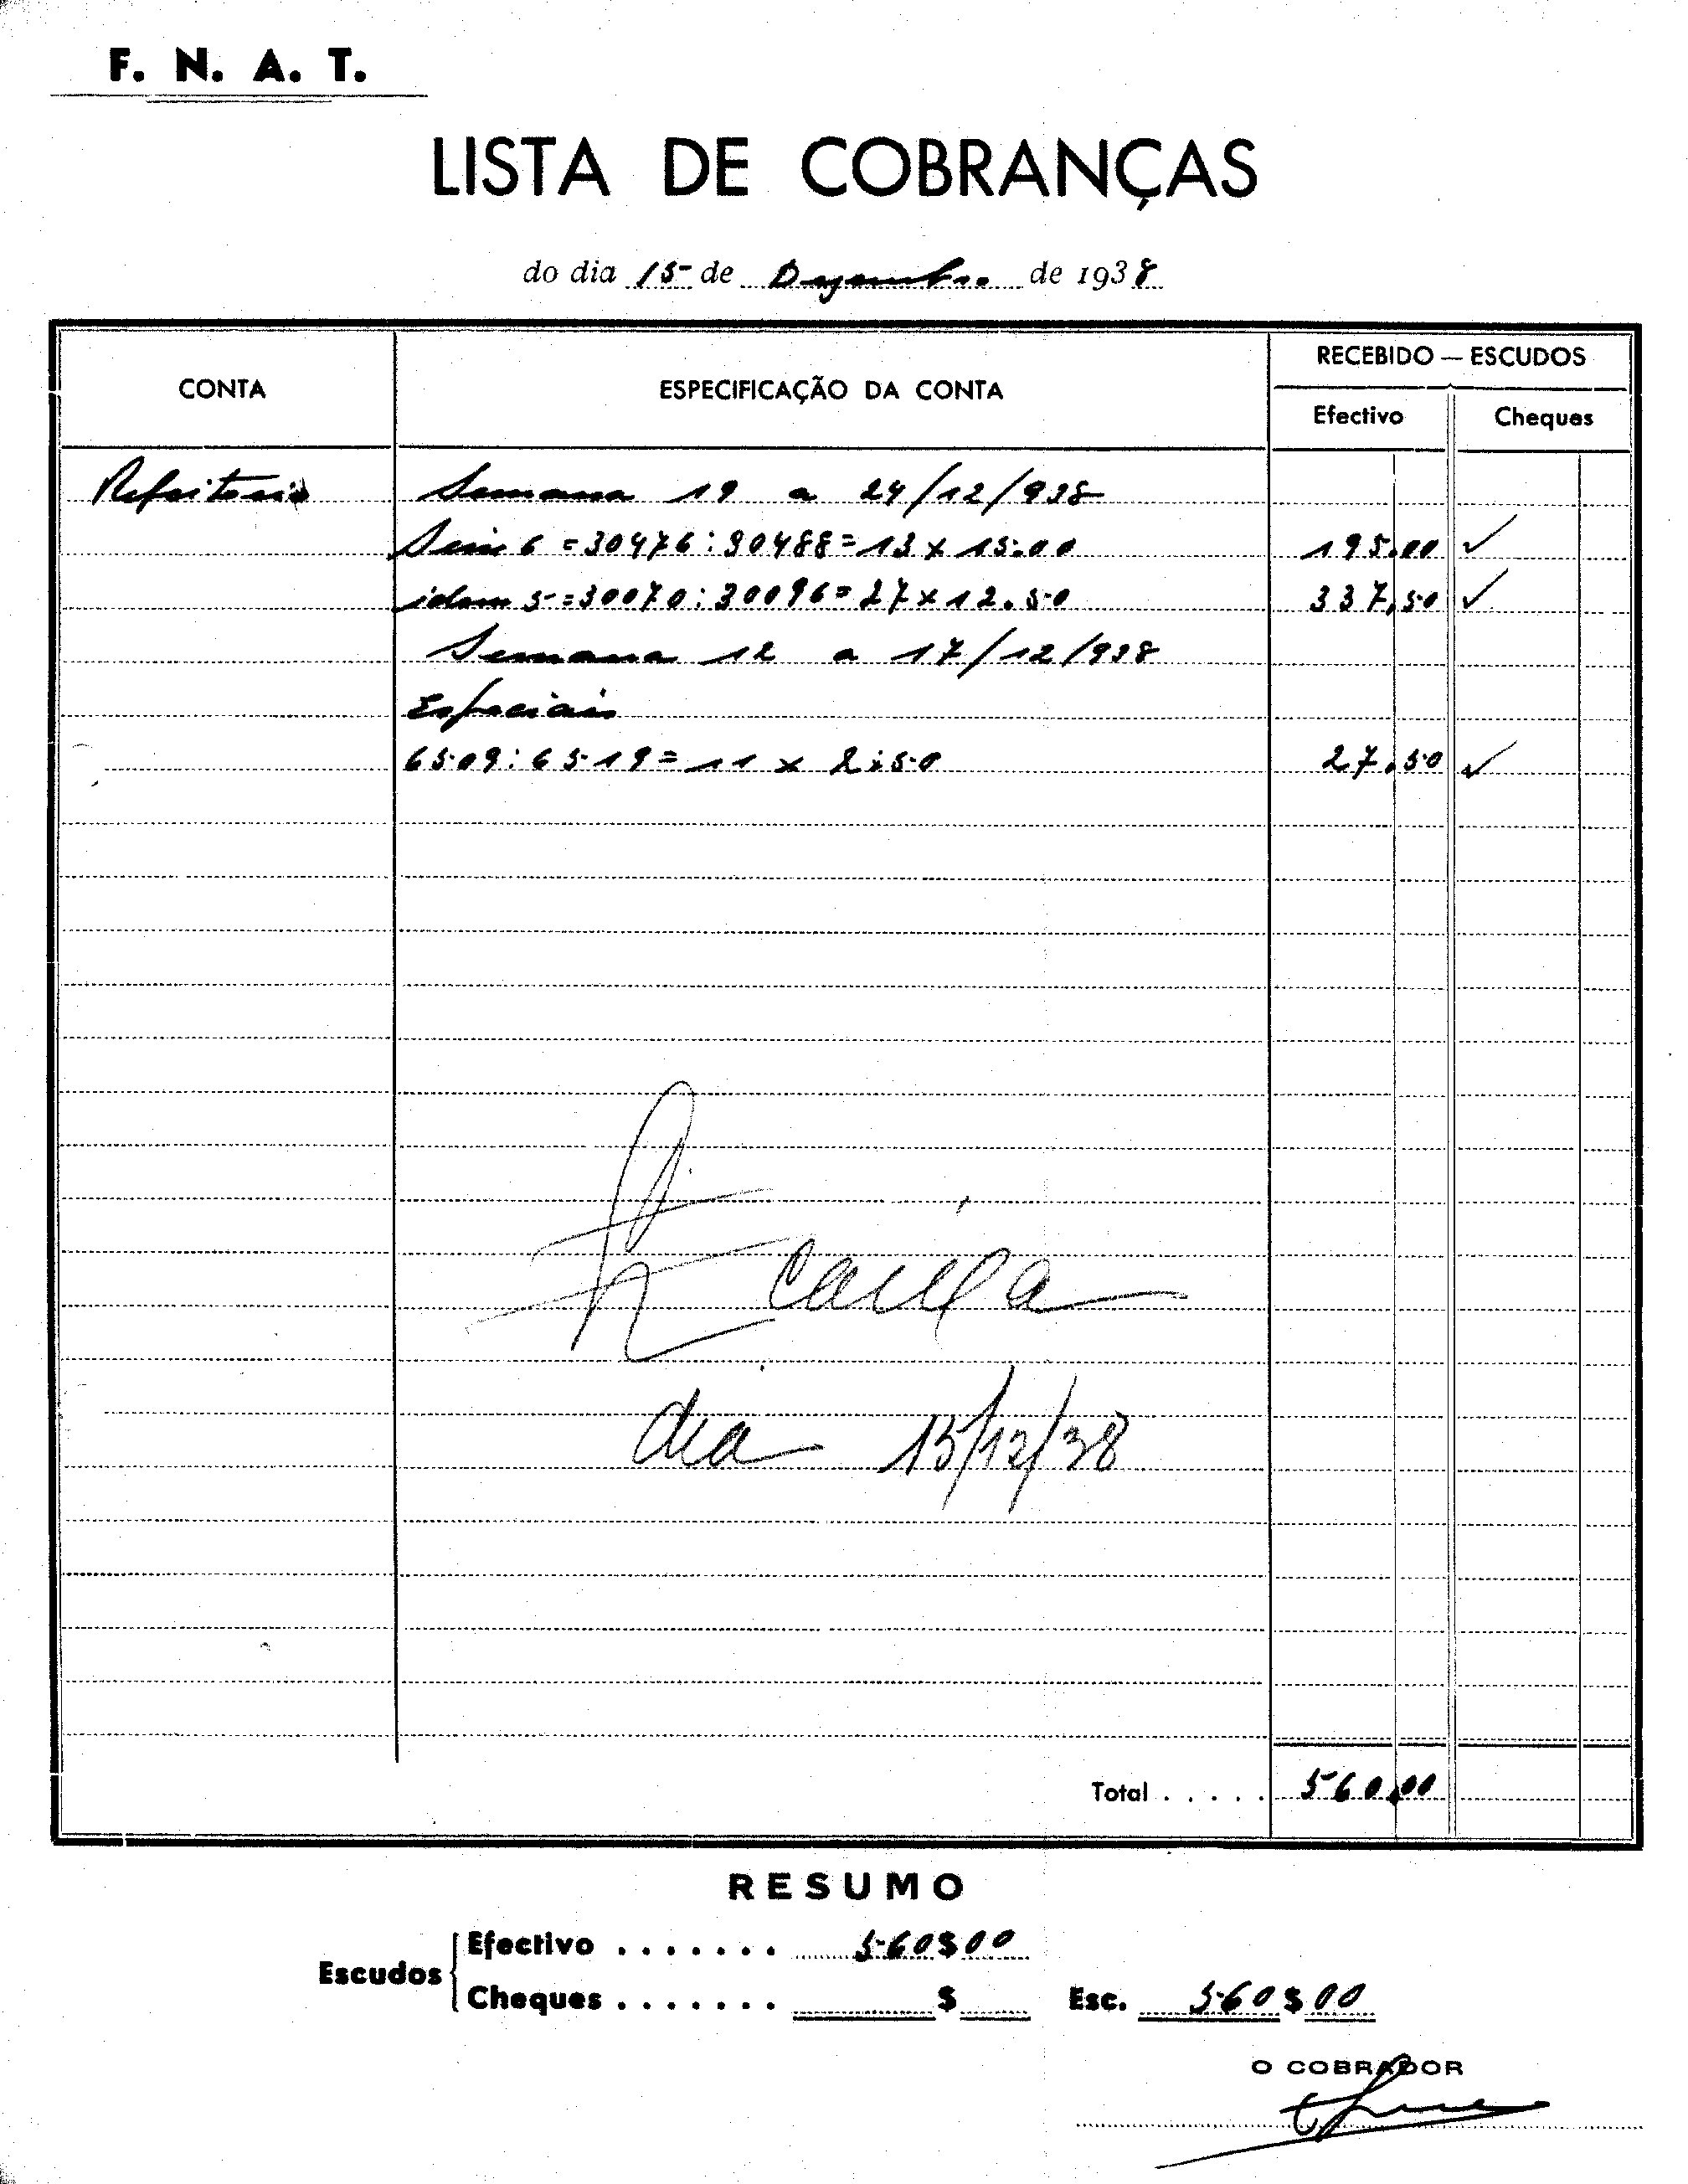 F. N. A. T.
LISTA DE COBRANÇAS
do dia 15 de Dezembro de 1938
CONTA
ESPECIFICAÇÃO DA CONTA
RECEBIDO — ESCUDOS
Efectivo
Cheques
Refeitorio Semana 19 a 24/12/938
Serie 6 = 30476 : 30488 = 13 x 15.00 195.00 ✓
idem 5 = 30070 : 30096 = 27 x 12.50 337,50 ✓
Semana 12 a 17/12/938
Especiais
6509 : 6519 = 11 x 2.50 27.50 ✓
dia 15/12/38
Total ..... 560.00
RESUMO
Escudos
Efectivo ....... 560$00
Cheques ....... $
Esc. 560$00
O COBRADOR